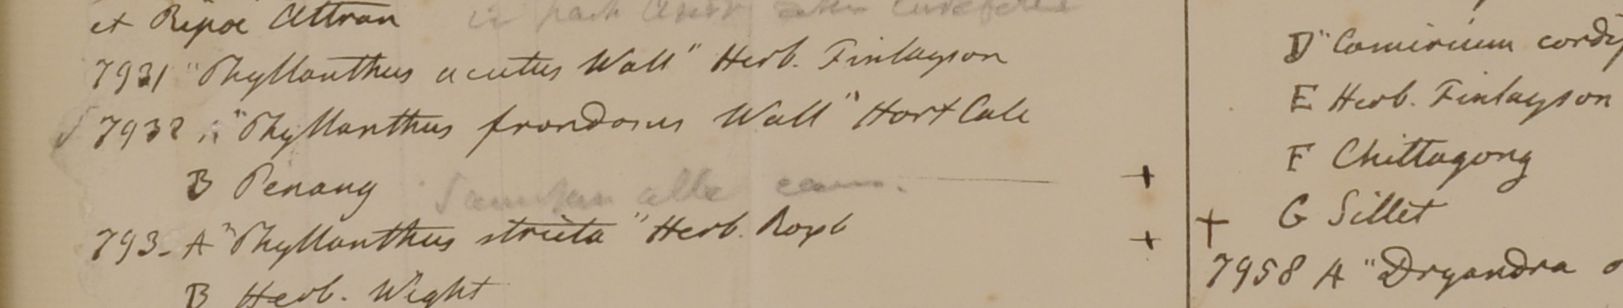 et Ripoe Attran
7931 "Phyllanthus acutus Wall" Herb. Finlayson
7932 "Phyllanthus frondosus Wall" Hort Calc
B Penang +
793- A "Phyllanthus stricta" Herb. Roxb +
B Herb. Wight
D "Camirium
E Herb. Finlayson
F Chittagong
+ G Sillet
7958 A "Dryandra